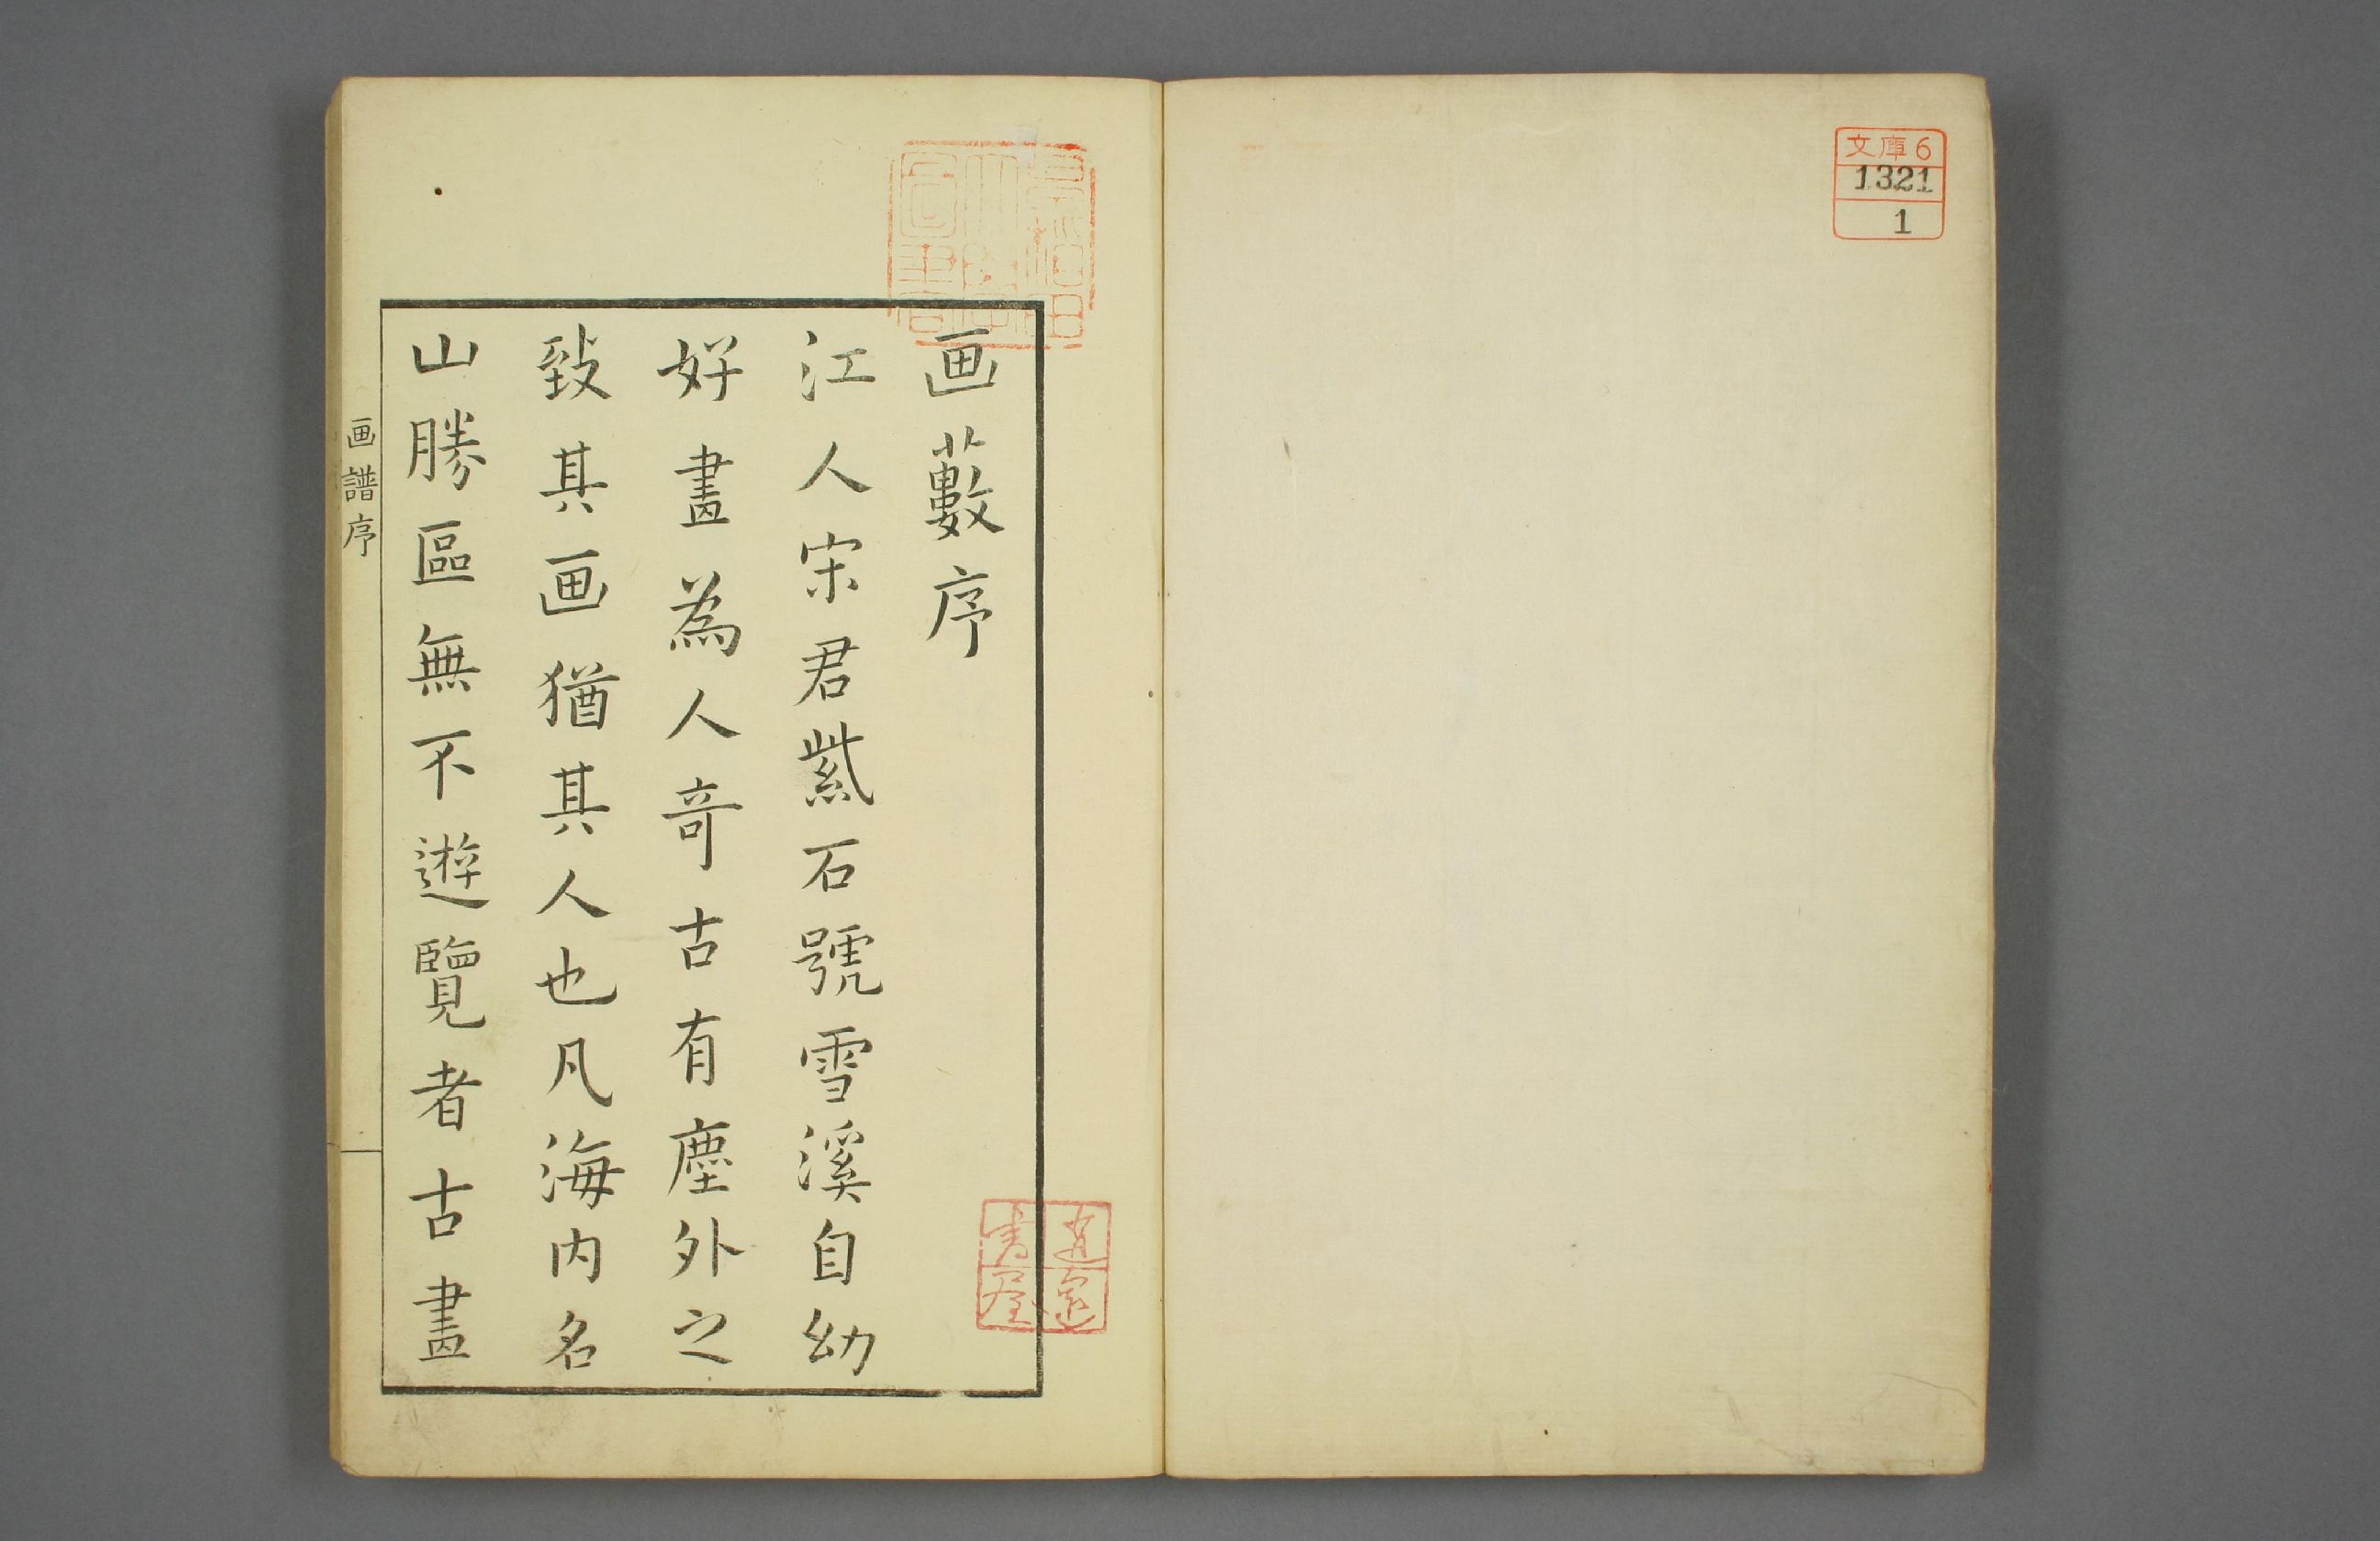 文庫6
1321
1
画藪序
江人宋君紫石號雪溪自幼
好畫為人竒古有塵外之
致其画猶其人也凡海内名
山勝區無不遊覽者古畫
画譜序